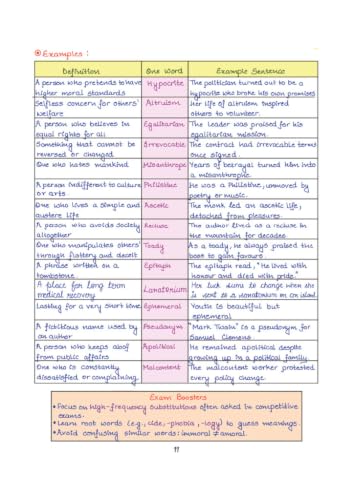 Examples :
Definition One Word Example Sentence
A person who pretends to have Hypocrite The politician turned out to be a
higher moral standards hypocrite who broke his own promises
Selfless concern for others' Altruism Her life of altruism inspired
welfare others to volunteer.
A person who believes in Egalitarian The leader was praised for his
equal rights for all egalitarian mission.
Something that cannot be Irrevocable The contract had irrevocable terms
reversed or changed once signed.
One who hates mankind Misanthrope Years of betrayal turned him into
a misanthrope.
A person indifferent to culture Philistine He was a Philistine, unmoved by
or arts poetry or music.
One who lives a simple and Ascetic The monk led an ascetic life,
austere life detached from pleasures.
A person who avoids society Recluse The author lived as a recluse in
altogether the mountain for decades.
One who manipulates others Toady As a toady, he always praised the
through flattery and deceit boss to gain favours.
A phrase written on a Epitaph The epitaph read, "He lived with
tombstone honour and died with pride."
A place for long term
medical recovery to change when she
is sent to a on an island.
Lasting for a very short time Ephemeral Youth is beautiful but
ephemeral
A fictitious name used by Pseudonym "Mark Twain" is a pseudonym for
an author Samuel Clemens.
A person who keeps aloof Apolitical He remained apolitical despite
from public affairs growing up in a political family.
One who is constantly Malcontent The malcontent worker protested
dissatisfied or complaining. every policy change.
Exam Boosters
• Focus on high-frequency substitutions often asked in competitive
exams.
• Learn root words (e.g., cide, -phobia, -logy) to guess meanings.
• Avoid confusing similar words: immoral ≠ amoral.